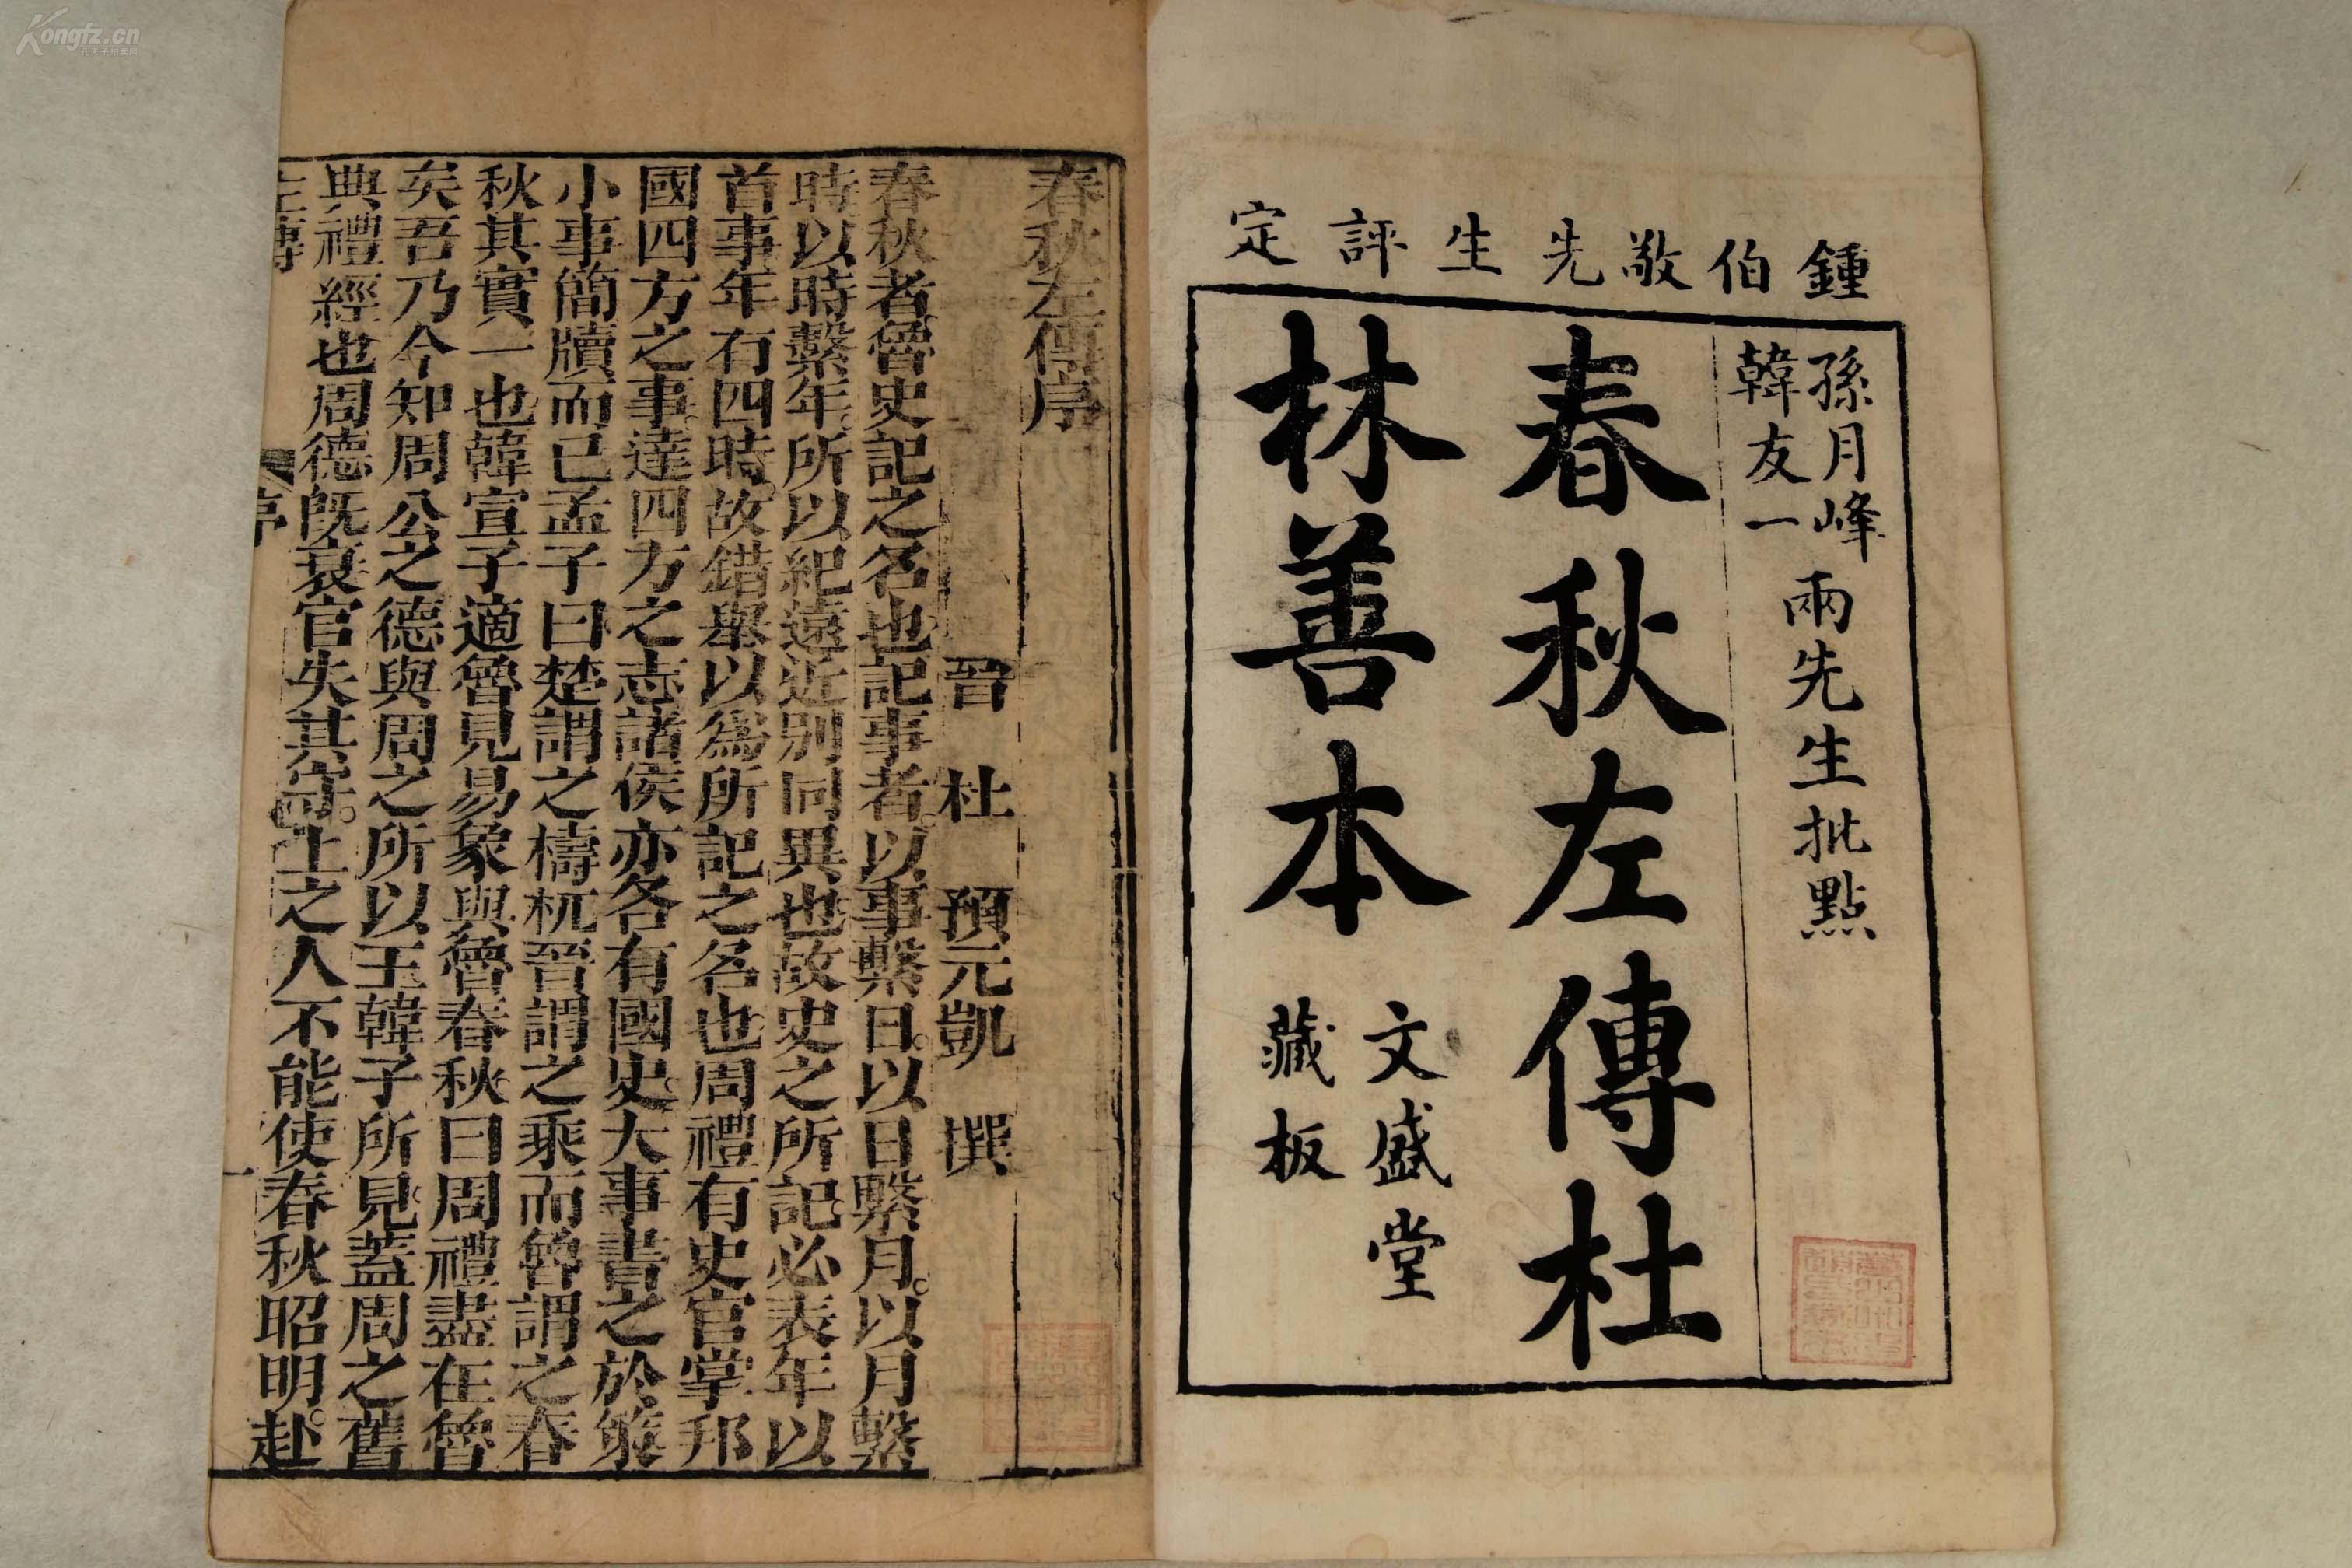 鍾伯敬先生評定
孫月峰
韓友一
兩先生批點
春秋左傳杜
林善本
文盛堂
藏板
春秋左傳序
晉 杜 預元凱 撰
春秋者魯史記之名也記事者以事繫日以日繫月以月繫
時以時繫年所以紀遠近別同異也故史之所記必表年以
首事年有四時故錯舉以為所記之名也周禮有史官掌邦
國四方之事達四方之志諸侯亦各有國史大事書之於策
小事簡牘而已孟子曰楚謂之檮杌晉謂之乘而魯謂之春
秋其實一也韓宣子適魯見易象與魯春秋曰周禮盡在魯
矣吾乃今知周公之德與周之所以王韓子所見蓋周之舊
典禮經也周德既衰官失其守上之人不能使春秋昭明赴
左傳
序
一
Kongfz.cn